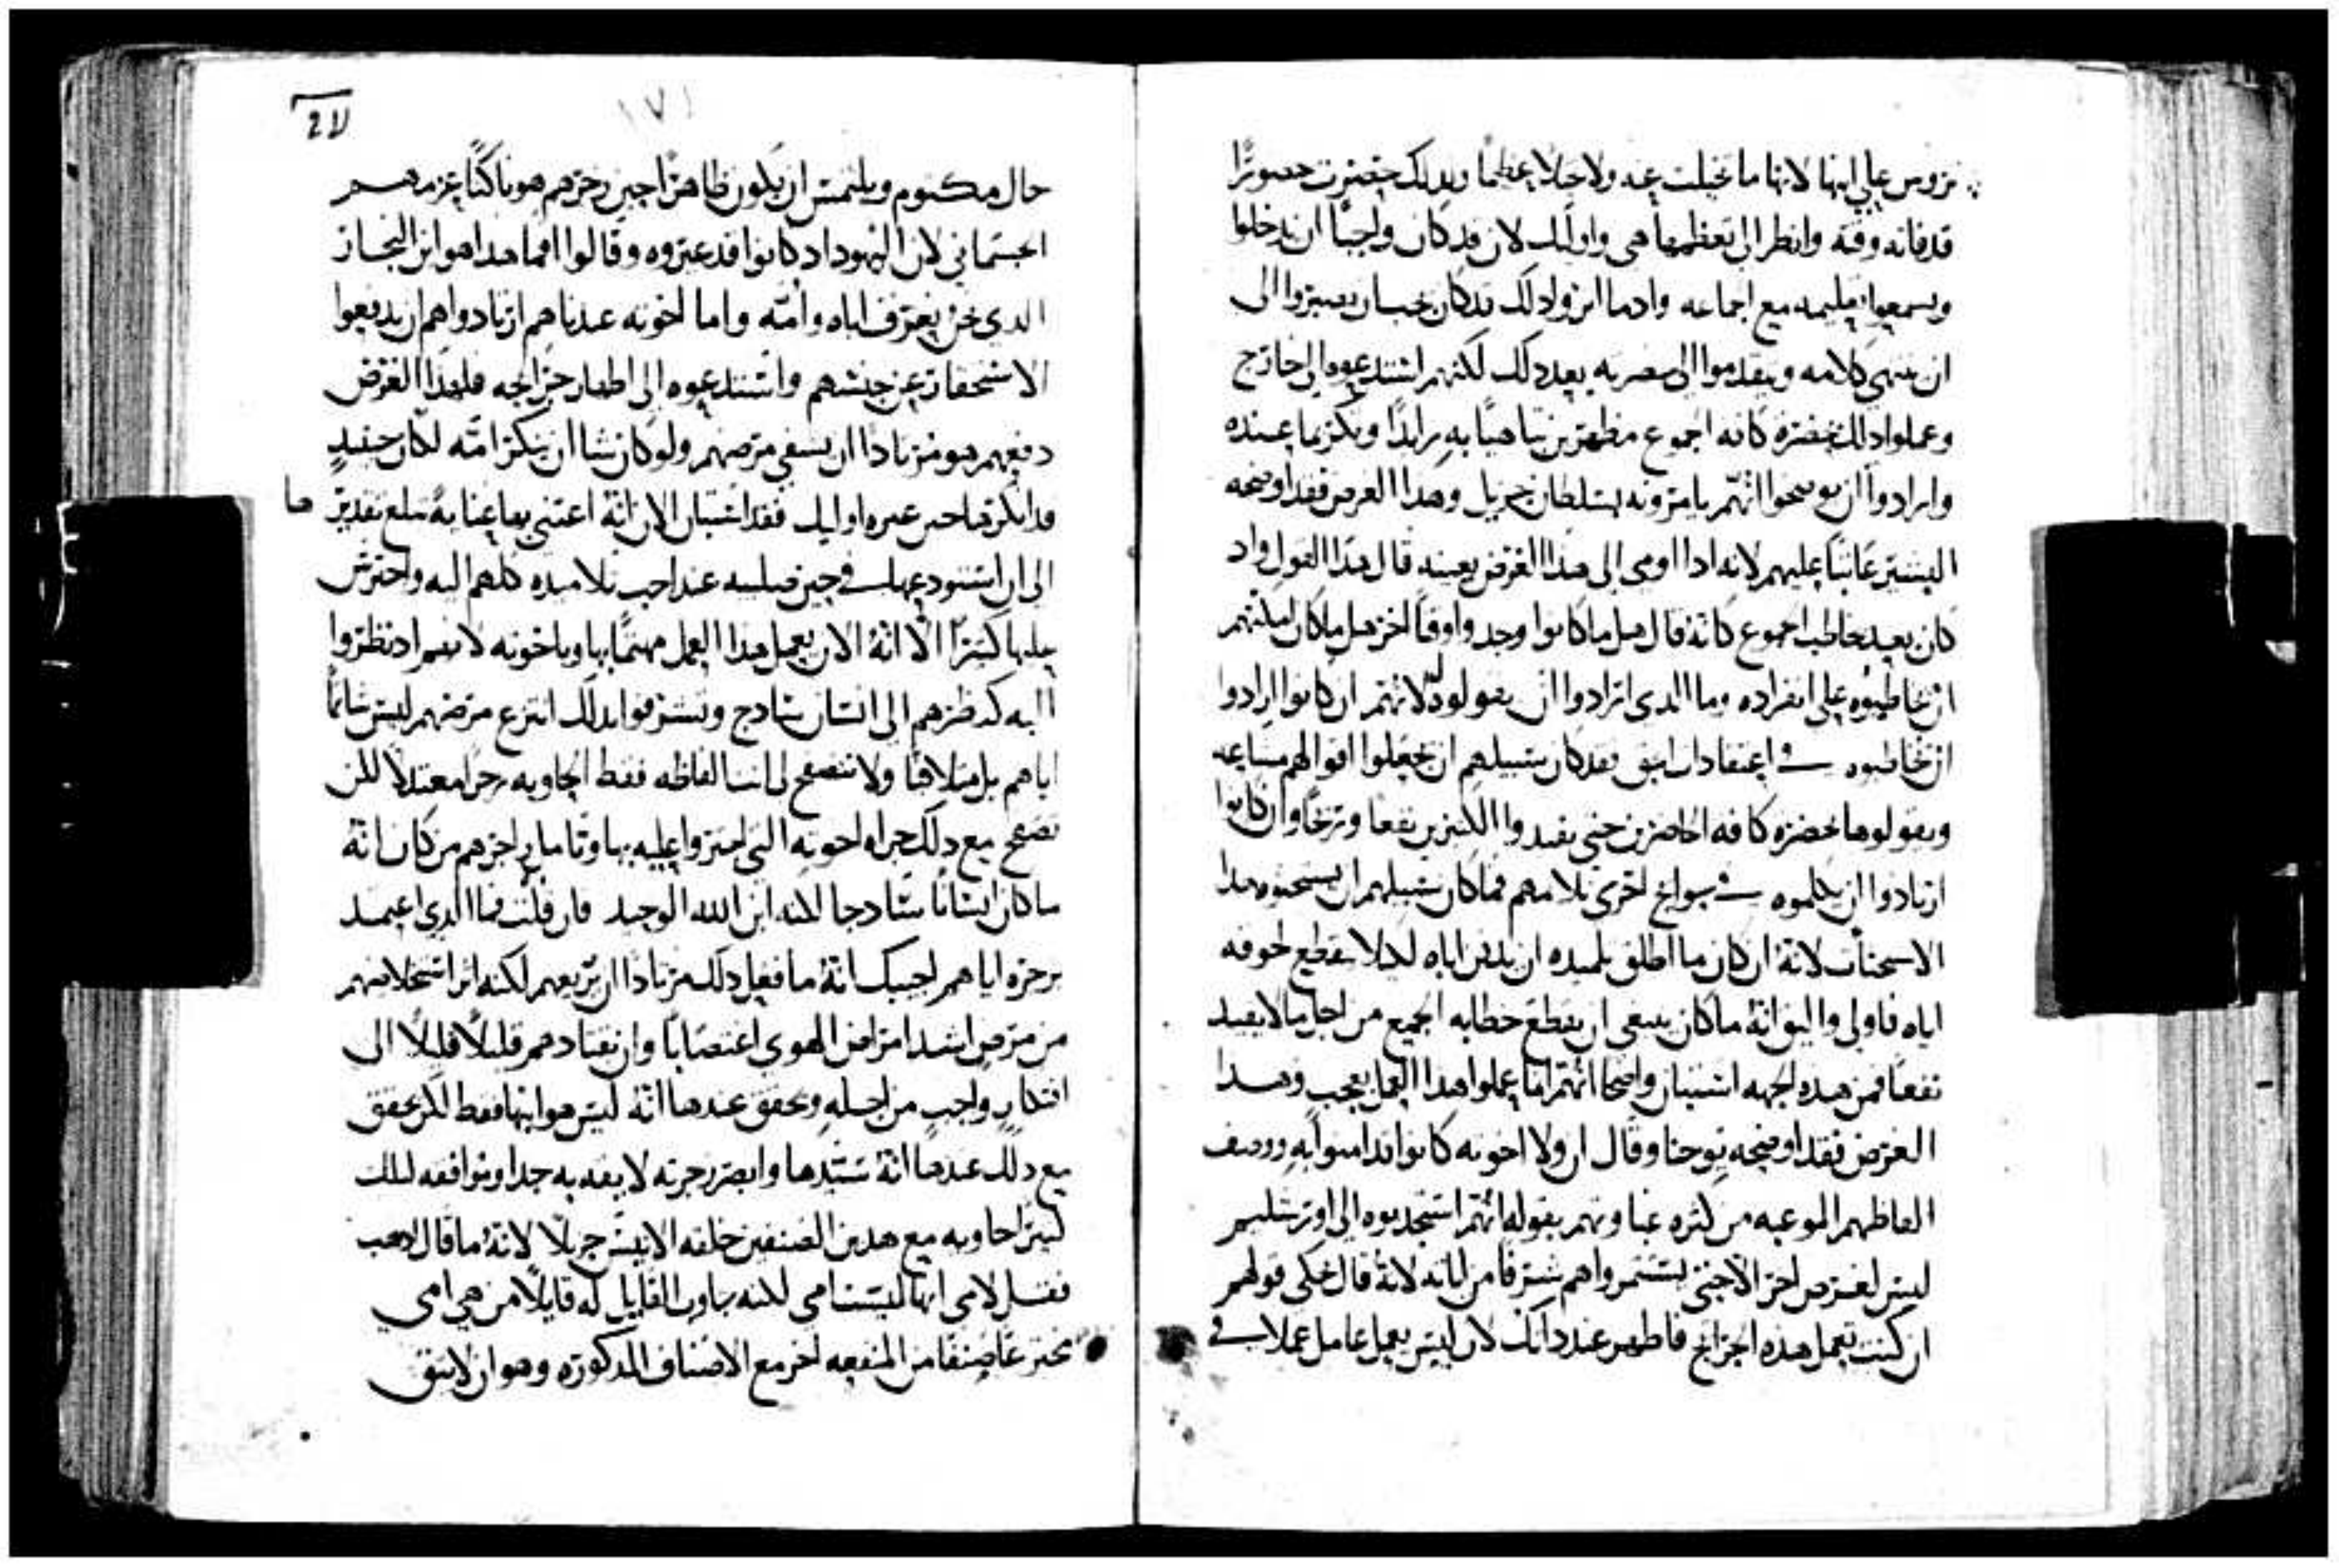 تروس علي ابنها لانها ما تخيلت عنه ولا جلا عظيما وبدلك حضرت حضورًا
قد فاته وقته وانظر الى تعظمها هي واوليك لان قد كان واجبًا ان يدخلوا
ويسمعوا تعليمه مع الجماعه وادما اثروا دلك قد كان يجب ان يصبروا الى
ان ينتهي كلامه ويتقدموا الى حضرته بعد دلك لكنهم استدعوه الى خارج
وعملوا دلك بحضرة كافه الجموع مظهرين تباهيًا به زايدًا وتكرما عنده
وارادوا ان يوضحوا انهم يامرونه بسلطان جزيل وهدا الغرض فقد اوضحه
البشير عاتبًا عليهم لانه ادا اومى الى هدا الغرض بعينه قال هدا القول واد
كان بعد يخاطب الجموع كانه قال هل ما كانوا وجدوا وقتًا اخر هل ما كان امكنهم
ان يخاطبوه على انفراده وما الدى ارادوا ان يقولوه لانهم ان كانوا ارادوا
ان يخاطبوه في اعتقادات الحق فقد كان سبيلهم ان يجعلوا اقوالهم مشاعه
ويقولوها بحضرة كافه الحاضرين حتى يفيدوا الكثيرين نفعا وربحًا وان كانوا
ارادوا ان يكلموه في حوايج اخرى تلامهم فما كان سبيلهم ان يستحثوه هدا
الاستحثات لانه ان كان ما اطلق لتلميده ان يدفن اباه لكيلا يقطع لحوقه
اياه فاولى واليق انه ما كان ينبغي ان يقطع خطابه الجميع من اجل ما لا يفيد
نفعًا فمن هده الجهه استبان واضحا انهم انما عملوا هدا العمل بعجب وهدا
الغرض فقد اوضحه يوحنا وقال ان ولا اخوته كانوا قد امنوا به ووصف
الفاظهم الموعبه من كثره غباوتهم بقوله انهم استجدبوه الى اورشليم
ليس لغرض اخر الا حتى يستثمروا هم شرفًا من اياته لانه قال حكى قولهم
ان كنت تعمل هده الجرايح فاظهر عند داتك لان ليس يعمل عامل عملا في
١٧١
حال مكتوم ويلتمس ان يكون ظاهرًا حين زجرهم هو باكتًا عزمهم
الجسماني لان اليهود اد كانوا قد عيروه وقالوا افما هدا هو ابن النجار
الدى نحن نعرف اباه وامه واما اخوته عندنا هم ارتادوا هم ان يدفعوا
الاستحقار عن جنسهم واستدعوه الى اظهار جرايحه فلهدا الغرض
دفعهم هو مرتادًا ان يشفي مرضهم ولو كان شا ان ينكر امه لكان حينيدٍ
قد انكرها حين عيره اوليك فقد استبان الان انه اعتنى بها عناية مبلغ تقديرها
الى ان استودعها في حين صلبه عند احب تلاميده كلهم اليه واحترس
عليها كثيرًا الا انه الان يعمل هدا العمل مهتمًا بها وباخوته لانهم اد نظروا
اليه كنظرهم الى انسان سادج وتشرفوا بدلك انتزع مرضهم ليس شاتمًا
اياهم بل متلافيًا ولا تتصفح لي انت الفاظه فقط الحاويه زجرًا معتدلا لكن
تصفح مع دلك جراه اخوته التي اجتروا عليه بها وتامل زاجرهم من كان انه
ما كان انسانًا سادجا لكنه ابن الله الوحيد فان قلت فما الدي اعتمد
بزجره اياهم اجيبك انه ما فعل دلك مرتادًا ان يريعهم لكنه اثر استخلاصهم
من مرض اشد امراض الهوى اغتصابًا وان يقتادهم قليلًا قليلًا الى
افتكارٍ واجبٍ من اجله ويحقق عندها انه ليس هو ابنها فقط لكن يحقق
مع دلك عندها انه سيدها وابصر زجرته لايقه به جدا وموافقه لتلك
كثيرًا حاويه مع هدين الصنفين خلقه الانيس جزيلًا لانه ما قال ادهب
فقل لامى انها ليست امي لكنه جاوب القايل له قايلًا من هي امي
مخترعًا صنفًا من المنفعه اخر مع الاصناف المدكورة وهو ان لا يثق